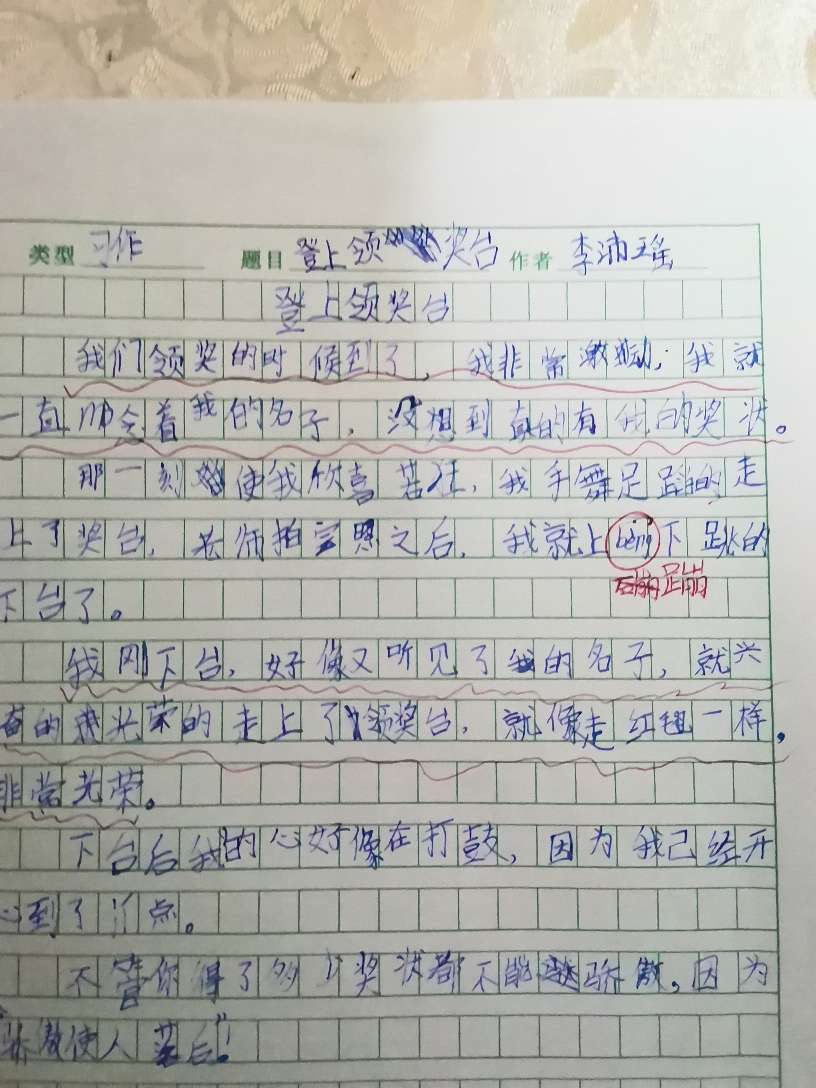 类型 习作 题目 登上领奖台 作者 李沛瑶
登上领奖台
我们领奖的时候到了,我非常激动,我就
一直吩令着我的名子,没想到真的有我的奖状。
那一刻使我欣喜若狂,我手舞足蹈的走
上了奖台,老师拍完照之后,我就上bèng下跳的
蹦
下台了。
我刚下台,好像又听见了我的名子,就兴
奋的光荣的走上了领奖台,就像走红毯一样,
非常光荣。
下台后我的心好像在打鼓,因为我已经开
心到了点。
不管你得了多少奖状都不能骄傲,因为
骄傲使人落后"!